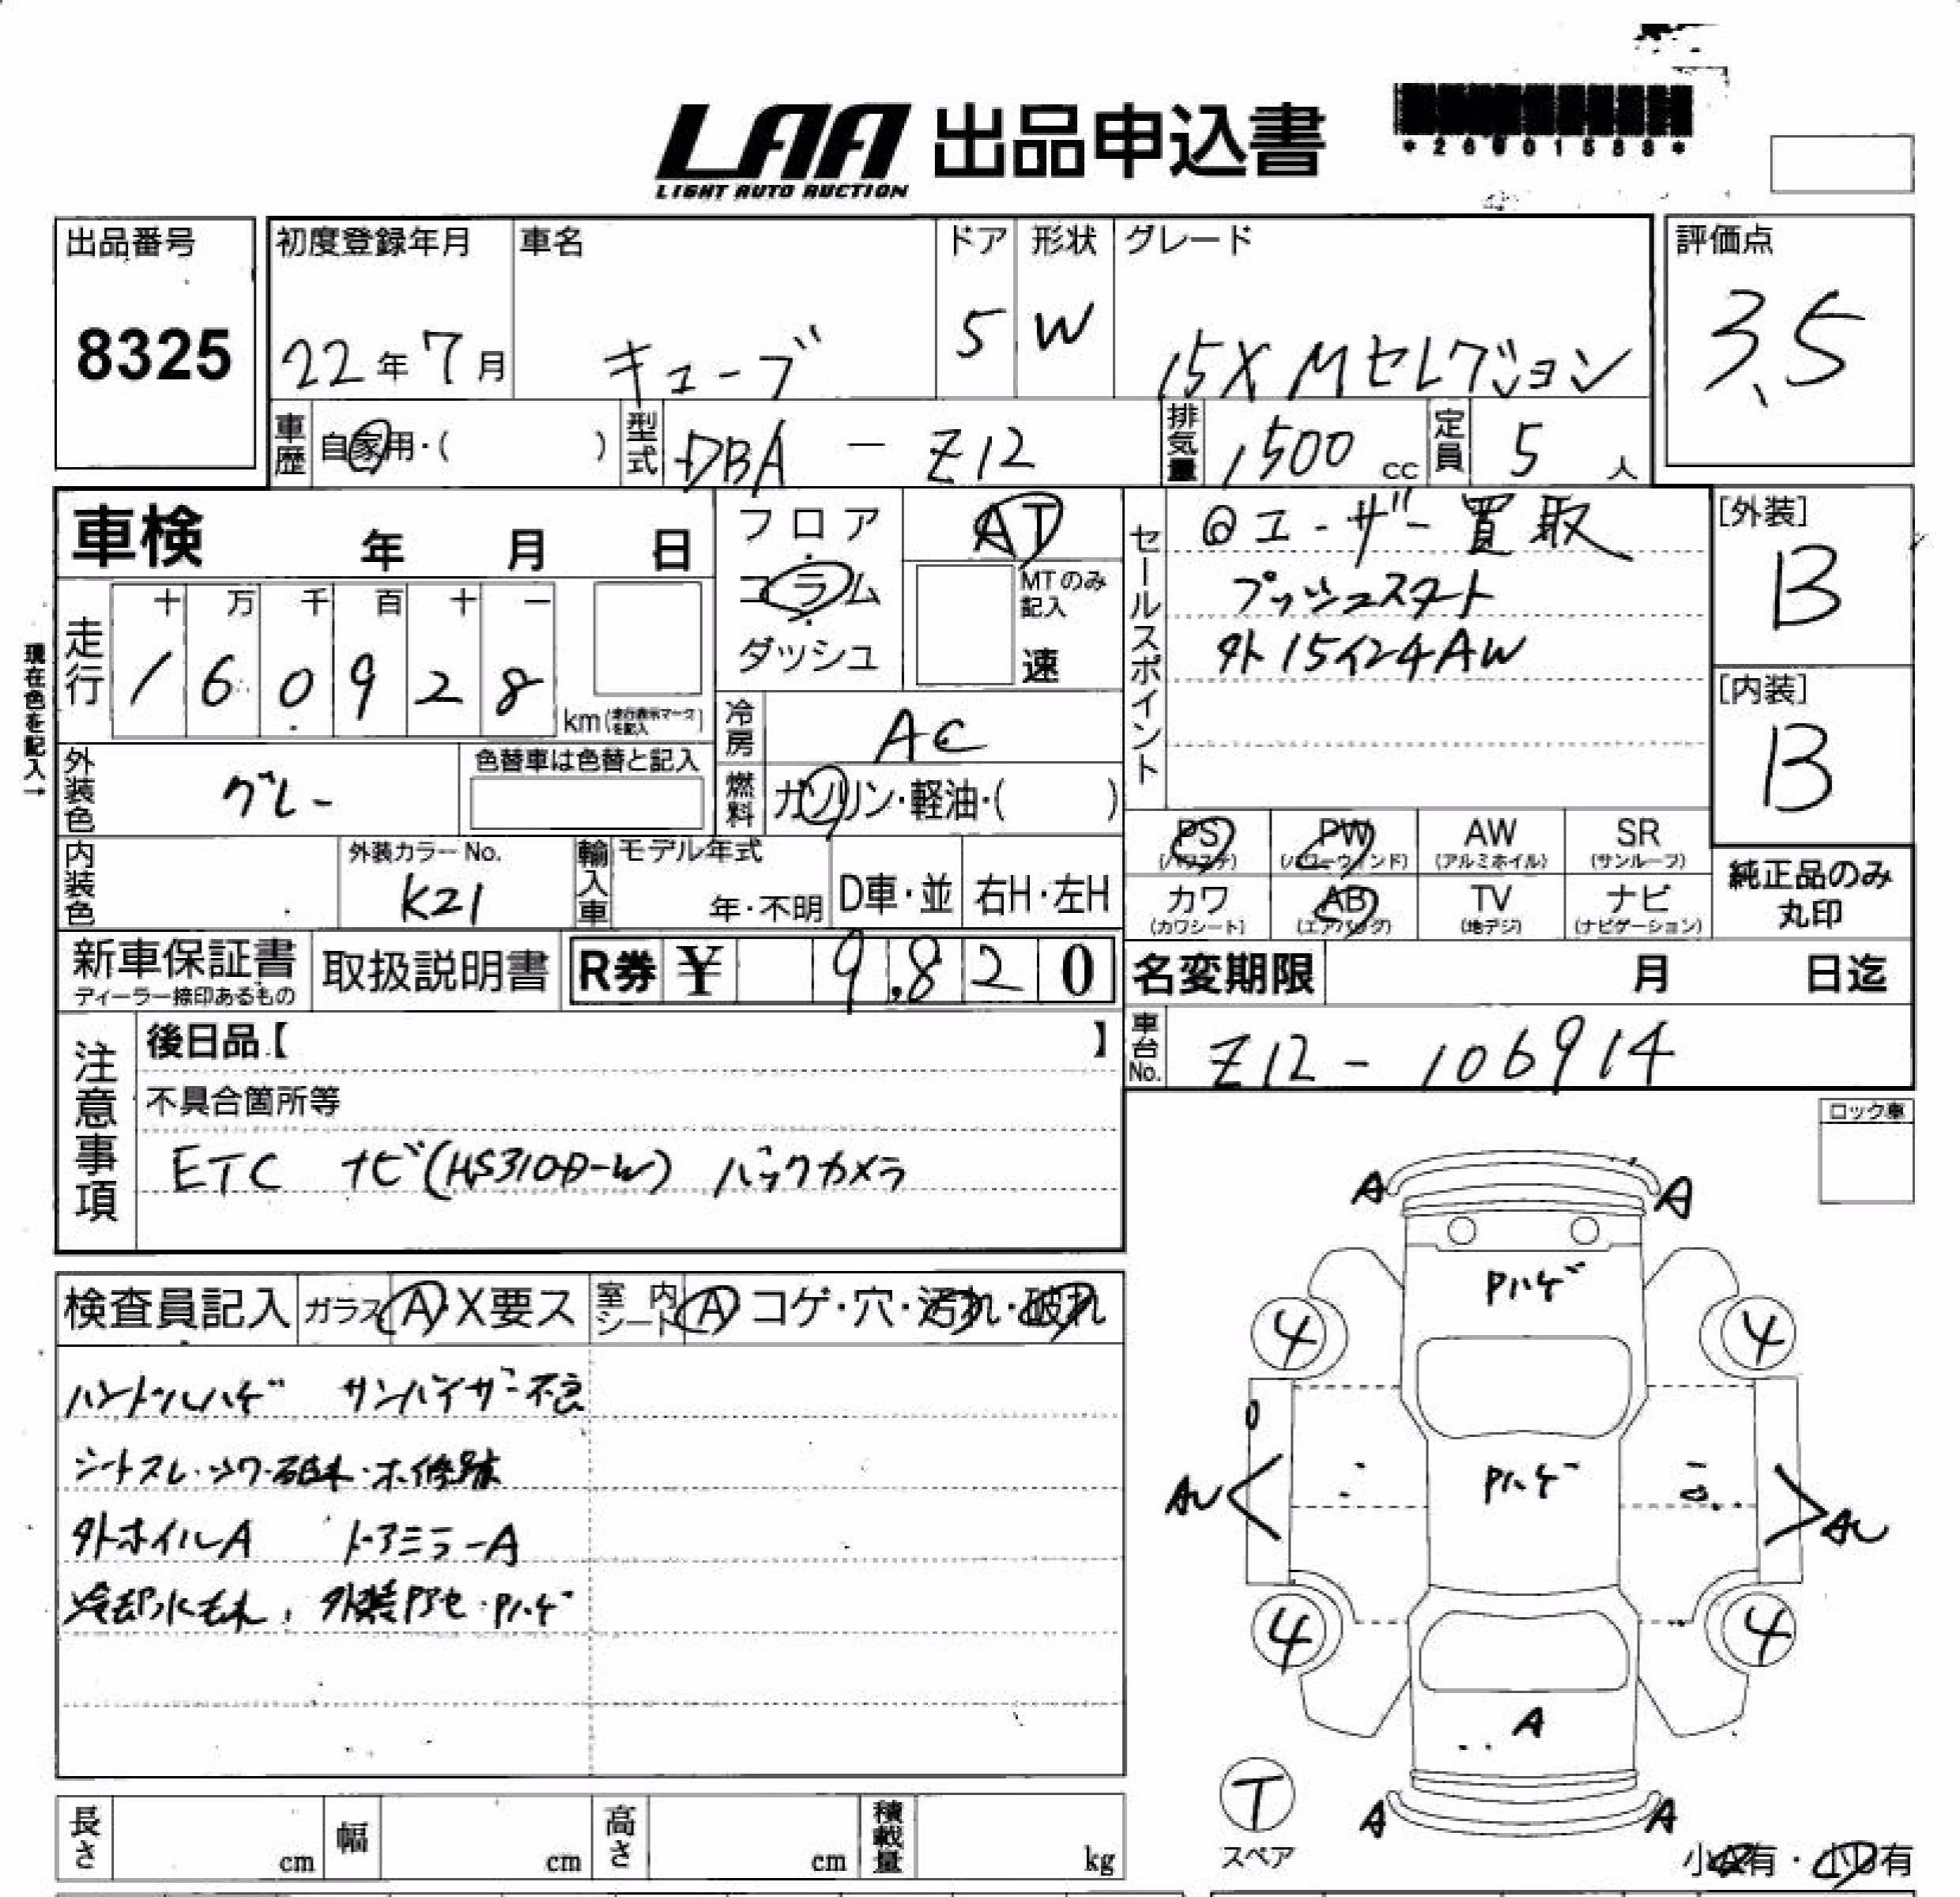 LAA 出品申込書
LIGHT AUTO AUCTION
出品番号
8325
初度登録年月
22年7月
車名
キューブ
ドア
5
形状
W
グレード
15X Mセレクション
評価点
3.5
車歴 自家用・( )
型式 DBA - Z12
排気量 1500 cc
定員 5 人
車検 年 月 日
フロア
コラム
ダッシュ
AT
MTのみ記入
速
セールスポイント
◎ユーザー買取
プッシュスタート
外15インチAW
[外装]
B
[内装]
B
現在色を記入→
走行
十 万 千 百 十 一
1 6 0 9 2 8
km(走行表示マークを記入)
冷房 AC
燃料 ガソリン・軽油・( )
外装色 グレー
色替車は色替と記入
内装色
外装カラーNo.
K21
輸入車
モデル年式
年・不明
D車・並
右H・左H
PS (パワステ)
PW (パワーウインド)
AW (アルミホイル)
SR (サンルーフ)
カワ (カワシート)
AB (エアバッグ)
TV (地デジ)
ナビ (ナビゲーション)
純正品のみ
丸印
新車保証書
ディーラー捺印あるもの
取扱説明書
R券 ¥ 9,820
名変期限 月 日迄
車台No. Z12 - 106914
注意事項
後日品【 】
不具合箇所等
ETC ナビ(HS310D-W) バックカメラ
ロック車
検査員記入
ガラス A・X要ス
室内シート A コゲ・穴・汚れ・破れ
ハンドルハゲ サンバイザー不良
シートスレ・シワ・破れ・ホ修跡
外ホイルA ドアミラーA
冷却水もれ、外装アセ・Pハゲ
A A
Pハゲ
4 4
Pハゲ
AU AU
4 4
A
T
スペア
A A
小キズ有・小凹有
長さ cm
幅 cm
高さ cm
積載量 kg